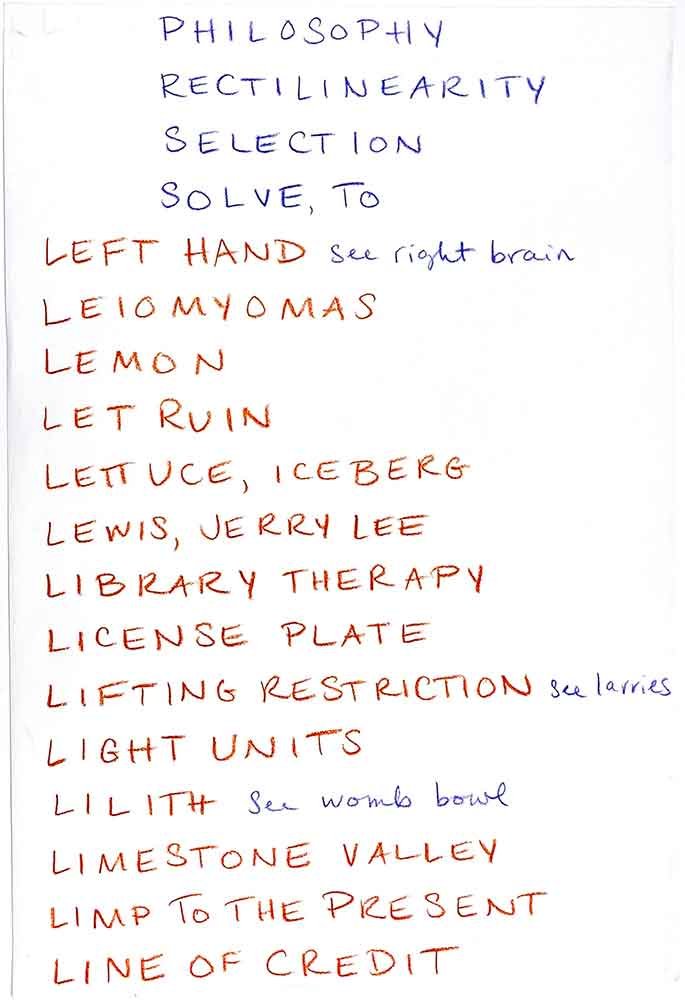 PHILOSOPHY
RECTILINEARITY
SELECTION
SOLVE, TO
LEFT HAND see right brain
LEIOMYOMAS
LEMON
LET RUIN
LETTUCE, ICEBERG
LEWIS, JERRY LEE
LIBRARY THERAPY
LICENSE PLATE
LIFTING RESTRICTION see larries
LIGHT UNITS
LILITH see womb bowl
LIMESTONE VALLEY
LIMP TO THE PRESENT
LINE OF CREDIT